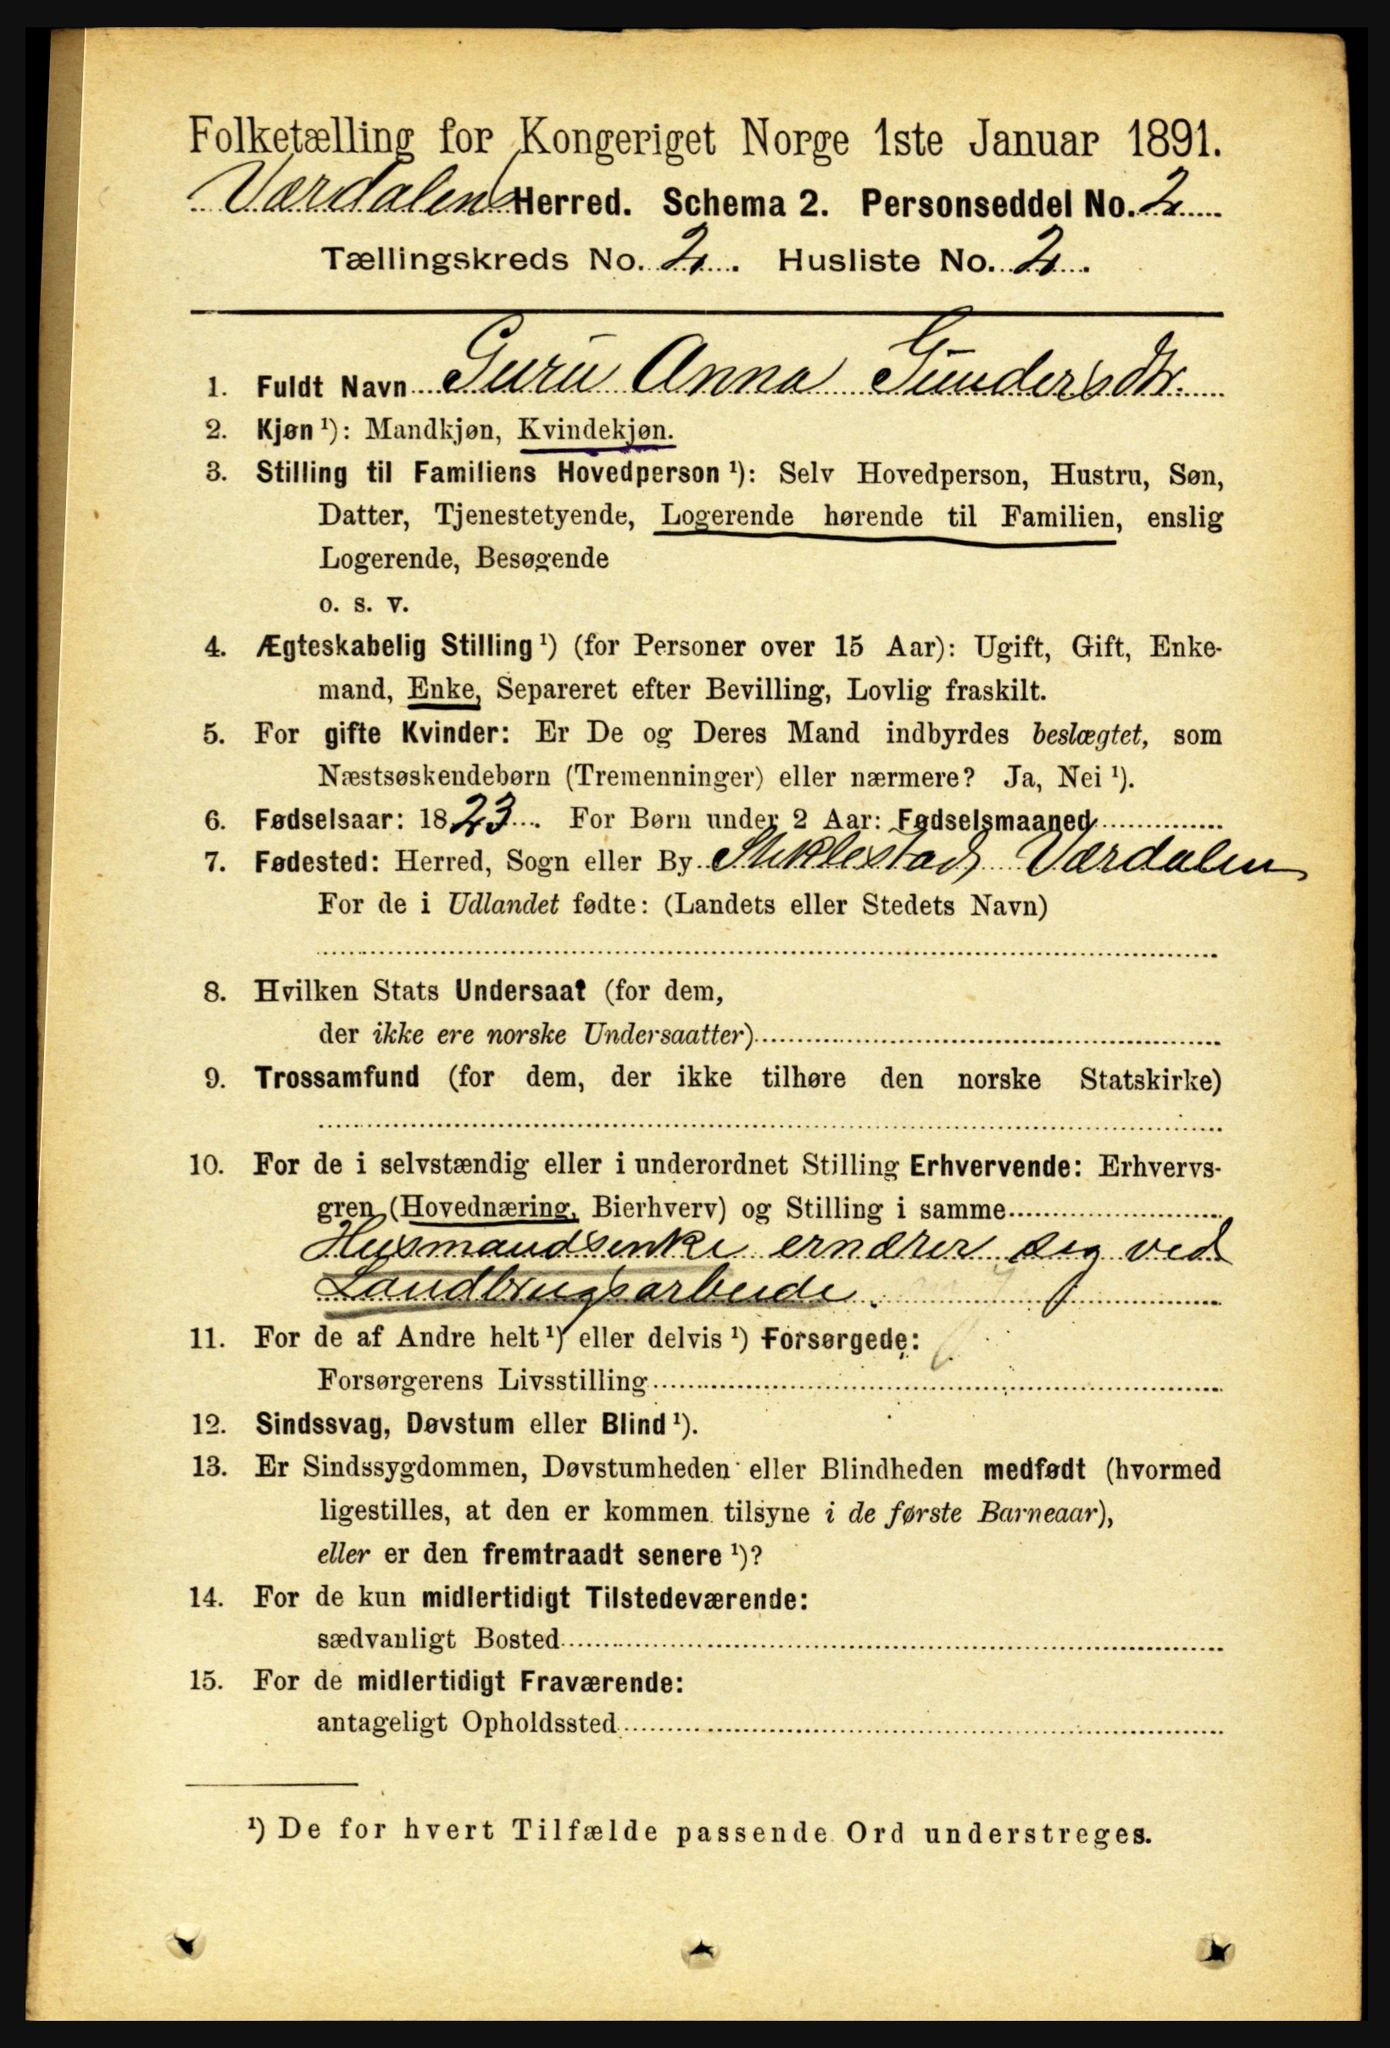 Folketælling for Kongeriget Norge 1ste Januar 1891.
Værdalens Herred. Schema 2. Personseddel No. 2
Tællingskreds No. 2. Husliste No. 2.
1. Fuldt Navn Guru Anna Gundersdtr.
2. Kjøn ¹): Mandkjøn, Kvindekjøn.
3. Stilling til Familiens Hovedperson ¹): Selv Hovedperson, Hustru, Søn,
Datter, Tjenestetyende, Logerende hørende til Familien, enslig
Logerende, Besøgende
o. s. v.
4. Ægteskabelig Stilling ¹) (for Personer over 15 Aar): Ugift, Gift, Enke-
mand, Enke, Separeret efter Bevilling, Lovlig fraskilt.
5. For gifte Kvinder: Er De og Deres Mand indbyrdes beslægtet, som
Næstsøskendebørn (Tremenninger) eller nærmere? Ja, Nei ¹).
6. Fødselsaar: 1823. For Børn under 2 Aar: Fødselsmaaned
7. Fødested: Herred, Sogn eller By Stiklestad, Værdalen
For de i Udlandet fødte: (Landets eller Stedets Navn)
8. Hvilken Stats Undersaat (for dem,
der ikke ere norske Undersaatter)
9. Trossamfund (for dem, der ikke tilhøre den norske Statskirke)
10. For de i selvstændig eller i underordnet Stilling Erhvervende: Erhvervs-
gren (Hovednæring, Bierhverv) og Stilling i samme
Husmandsenke ernærer sig ved
Landbrugsarbeide.
11. For de af Andre helt ¹) eller delvis ¹) Forsørgede:
Forsørgerens Livsstilling
12. Sindssvag, Døvstum eller Blind ¹).
13. Er Sindssygdommen, Døvstumheden eller Blindheden medfødt (hvormed
ligestilles, at den er kommen tilsyne i de første Barneaar),
eller er den fremtraadt senere ¹)?
14. For de kun midlertidigt Tilstedeværende:
sædvanligt Bosted
15. For de midlertidigt Fraværende:
antageligt Opholdssted
¹) De for hvert Tilfælde passende Ord understreges.